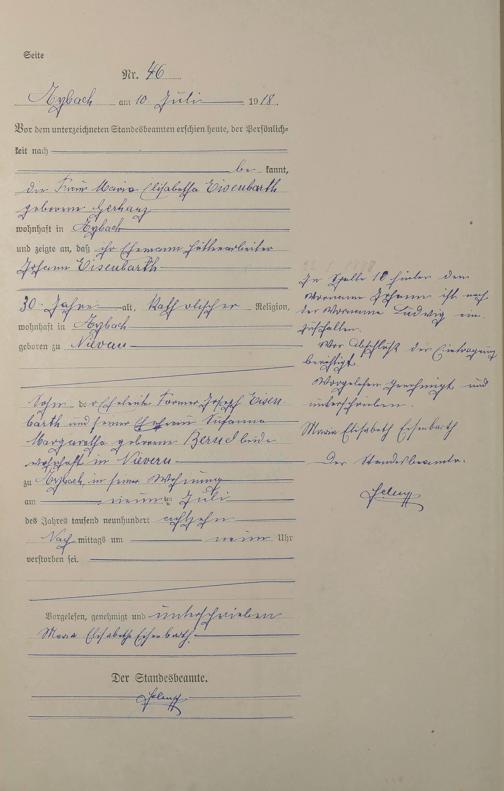 Seite
Nr. 46
Aybach am 10 Juli 1918.
Vor dem unterzeichneten Standesbeamten erschien heute, der Persönlich-
keit nach
be kannt,
die Frau Maria Elisabetha Eisenbarth
geborene Gerharz
wohnhaft in Aybach
und zeigte an, daß ihr Ehemann Hüttenarbeiter
Johann Eisenbarth
30 Jahre alt, Katholischer Religion,
wohnhaft in Aybach
geboren zu Nievern
Sohn der Eheleute Former Joseph Eisen
barth und seiner Ehefrau Susanna
Margaretha geborene Bernd beide
wohnhaft in Nievern
zu Aybach in seiner Wohnung
am neunten Juli
des Jahres tausend neunhundert achtzehn
Nach mittags um neun Uhr
verstorben sei.
Vorgelesen, genehmigt und unterschrieben
Maria Elisabeth Eisenbarth
Der Standesbeamte.
In Spalte 10 hinter dem
Vornamen Johann ist noch
der Vorname Ludwig ein
Vor Abschluß der Eintragung
berichtigt
Vorgelesen genehmigt und
unterschrieben.
Maria Elisabeth Eisenbarth
Der Standesbeamte.